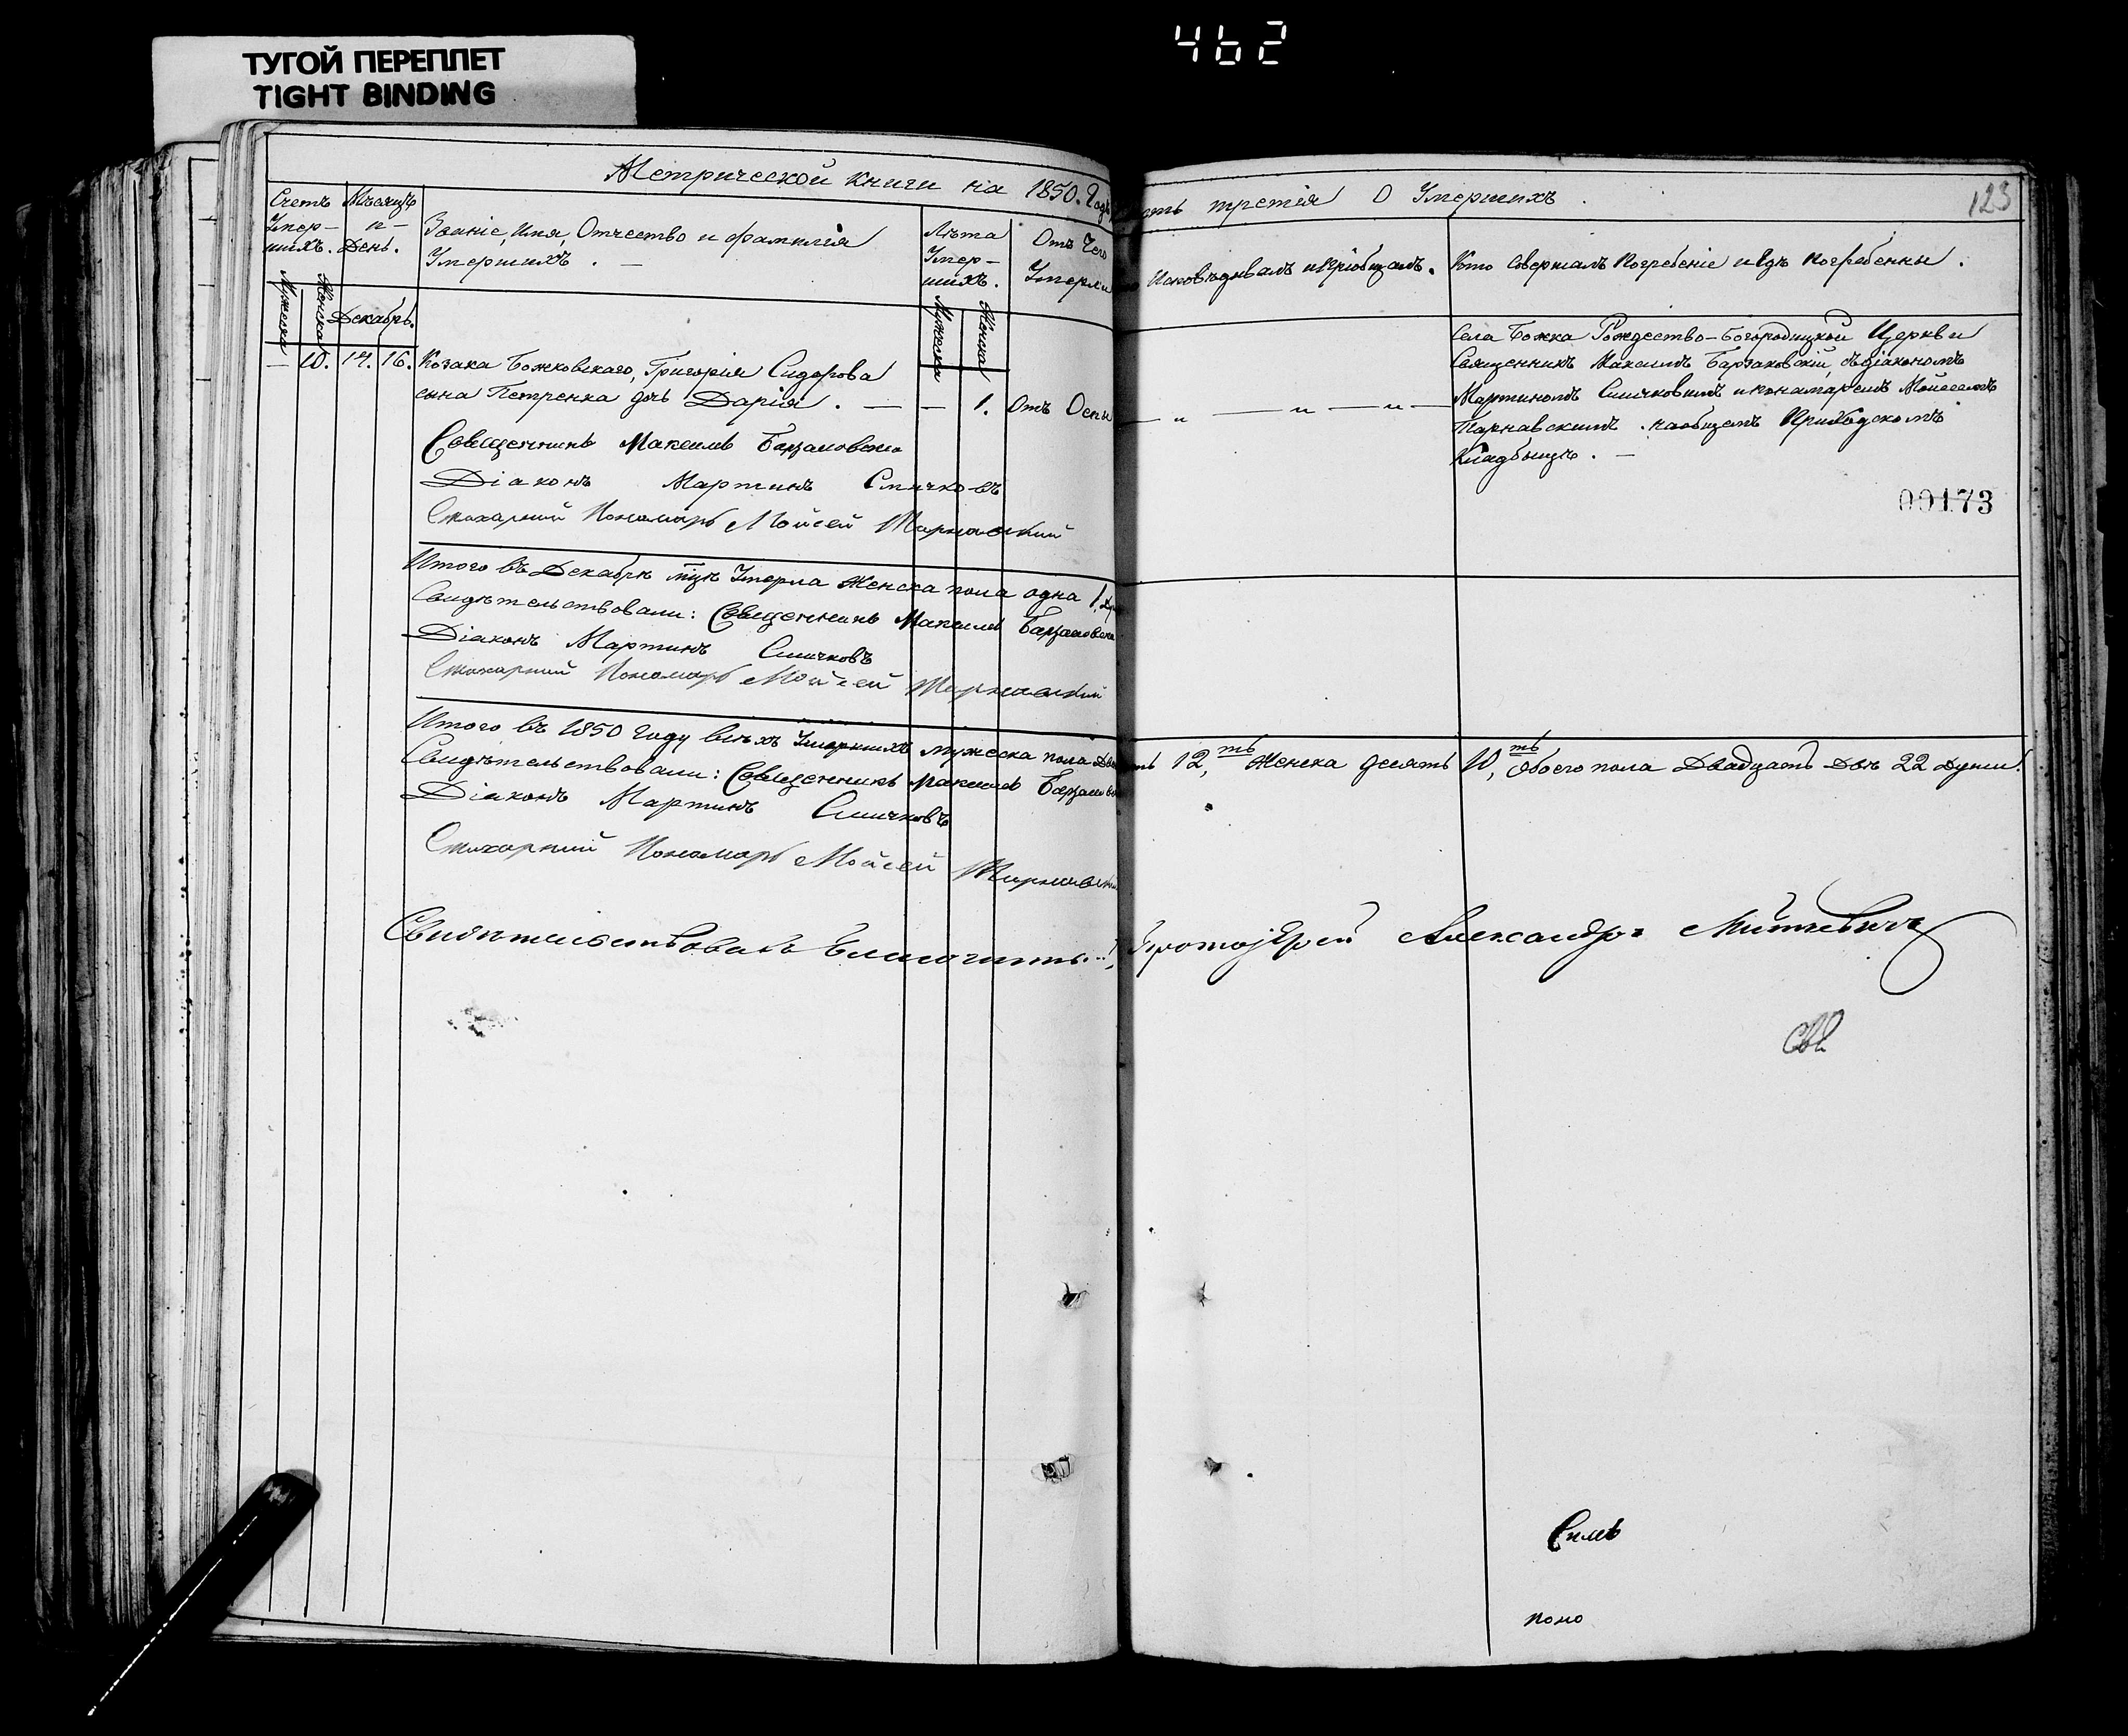 462
ТУГОЙ ПЕРЕПЛЕТ
TIGHT BINDING
Метрической книги на 1850. Годъ
Счетъ Умер- шихъ.
Мѣсяцъ и День.
Званіе, Имя, Отчество и фамилія Умершихъ. —
Лѣта Умер- шихъ.
Отъ Чего Умерли
Мужеска
Женска
Декабрь.
Мужеска
Женска
— 10. 14. 16. Козака Божковскаго, Григорія Сидорова
сына Петренка дочь Дарія. — — 1. Отъ Оспы
Священникъ Максимъ
Діаконъ Мартинъ Смичковъ
Стихарний Пономарь Мойсей
Итого въ Декабрѣ Умерла Женска пола одна 1.
Свидѣтельствовали: Священникъ Максимъ
Діаконъ Мартинъ Смичковъ
Стихарний Пономарь Мойсей
Итого въ 1850 Году всѣхъ Умершихъ мужеска пола
Свидѣтельствовали: Священникъ Максимъ
Діаконъ Мартинъ Смичковъ
Стихарний Пономарь Мойсей
Свидѣтельствовалъ
третія О Умершихъ.
123
Исповѣдывалъ и Пріобщалъ.
Кто Совершалъ Погребеніе и Гдѣ Погребенны.
— „ — „ — „ —
Села Божка Рождество-Богородицкой Церкви
Священникъ Максимъ Барзаковскій, съ діакономъ
Мартиномъ Смичковымъ и понамаремъ Мойсеемъ
Тарнавскимъ. на общемъ Приходскомъ
Кладбыщѣ. —
00173
12, ть Женска десять 10, ть Обоего пола Двадцать Двѣ 22 Души.
Протоіерей Александръ
Симъ
поно